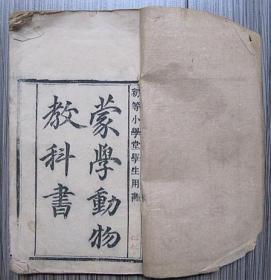 初等小學堂學生用書
蒙學動物
教科書